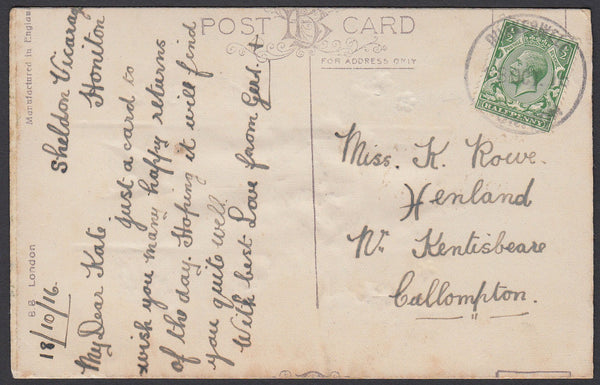 POST CARD
FOR ADDRESS ONLY
Manufactured in England
B.B London
Sheldon Vicarag
Honiton
18/10/16.
My Dear Kate
just a card to
wish you many happy returns
of the day. Hoping it will find
you quite well.
With best Love from Gert. X
HALFPENNY
Miss. K. Rowe.
Henland
Nr. Kentisbeare
Callompton.